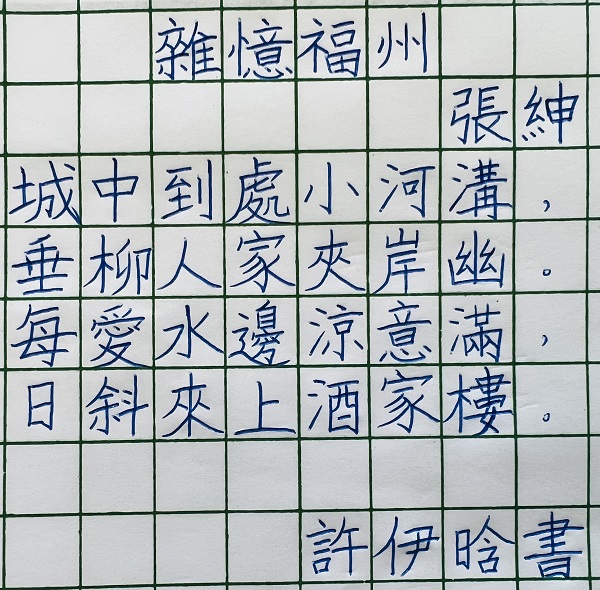 雜憶福州
張紳
城中到處小河溝，
垂柳人家夾岸幽。
每愛水邊涼意滿，
日斜來上酒家樓。
許伊晗書